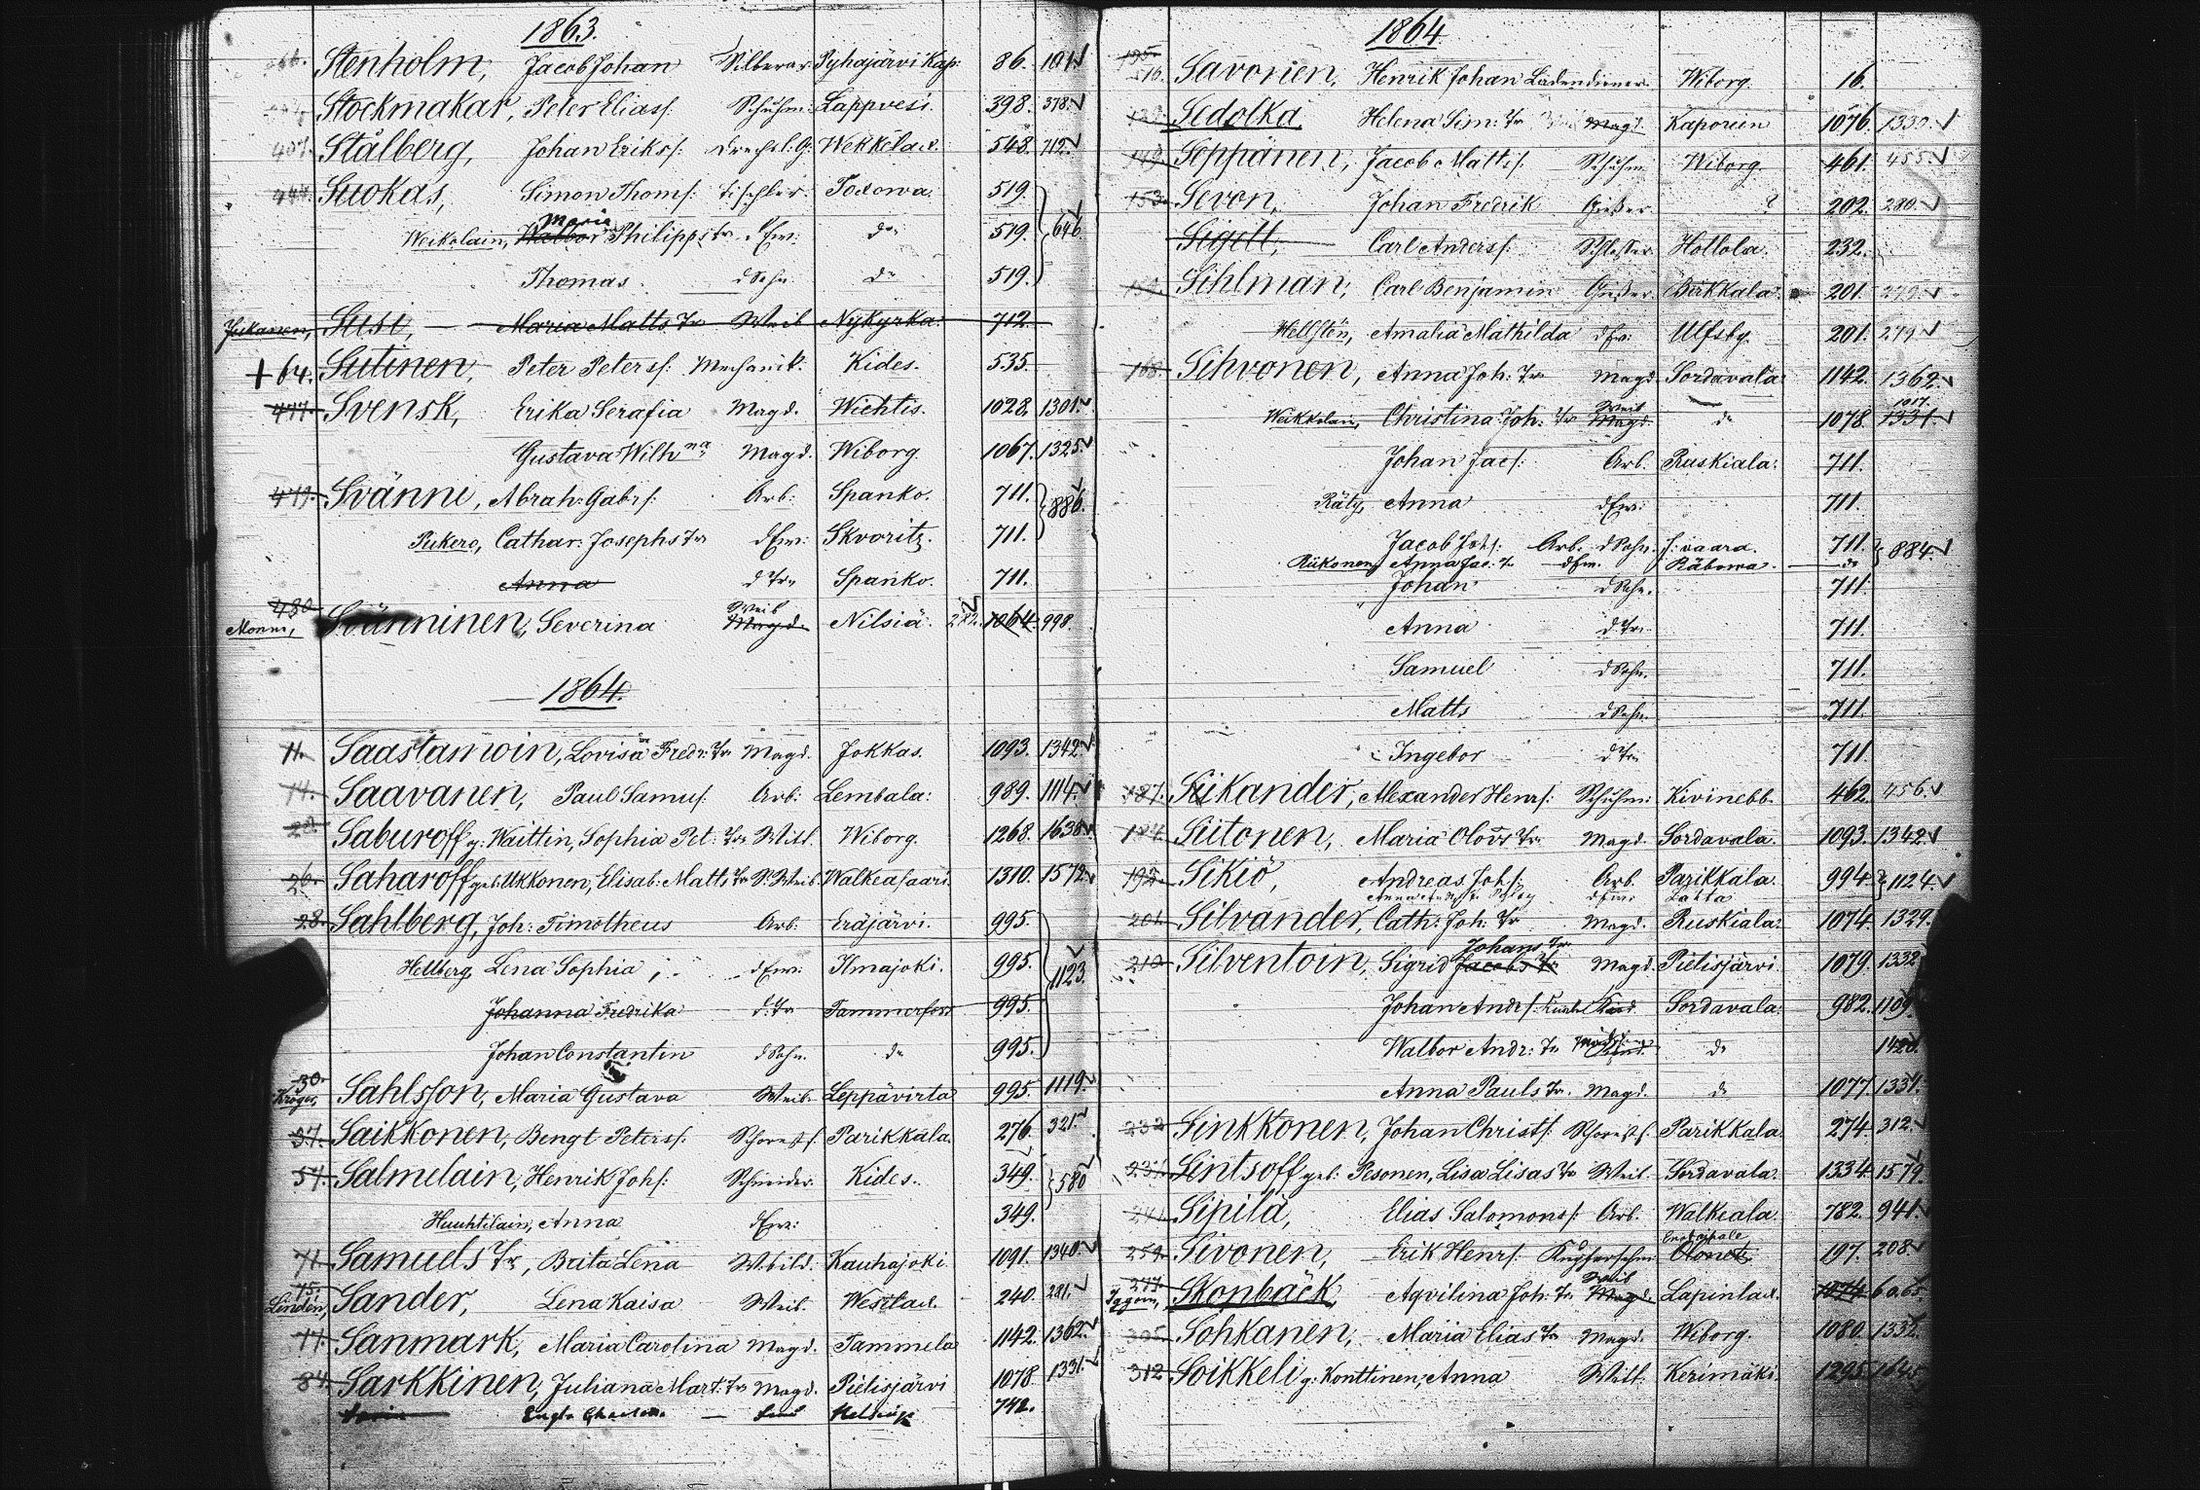 1863.
Stenholm, Jacob Johan Silberar. Pyhäjärvi Kap: 86. 101
Stockmakar, Peter Eliass: Schuhm: Lappvesi. 398. 378.
407. Stålberg, Johan Erikss: Drechsl: G: Wekkelad. 548. 712.
Suokas, Simon Thoms: Tischler. Toxowa. 519.
Weikolain, Walbor Maria Philipps Tr dFrr: do 519. 646.
Thomas dSohn do 519.
Susi, Maria Matts Tr Weib Nykyrka 712.
+ 64. Sutinen, Peter Peterss: Mechanik. Kides. 535.
477. Svensk, Erika Serafia Magd. Wichtis. 1028. 1301.
Gustava Wilhna Magd. Wiborg 1067. 1325.
479. Svänni, Abrah: Gabrs: Arb: Spanko. 711. 886.
Pukero, Cathar: Josephs Tr dFrr: Skvoritz. 711.
Anna d Tr Spanko. 711.
480
Monni, Svänninen, Severina Weib Magd. Nilsiä. 282. 1064. 998.
1864.
11. Saastamoin, Lovisa Fredr: Tr Magd. Jokkas. 1093. 1342.
14. Saavanen, Paul Samus: Arb: Lembala: 989. 1114.
Saburoff g: Waittin, Sophia Pet: Trs Witt. Wiborg. 1268. 1638.
26. Saharoff geb: Ukkonen, Elisab: Matts Tr S: Weib Walkeasaari 1310. 1572
28. Sahlberg, Joh: Timotheus Arb: Eräjärvi. 995.
Hellberg, Lena Sophia dFrr: Ilmajoki. 995. 1123.
Johanna Fredrika d: Tr Tammerfors 995.
Johan Constantin dSohn. do 995.
30.
Kröger, Sahlsson, Maria Gustava Weib. Leppävirta 995. 1119.
37. Saikkonen, Bengt Peterss: Schornstf. Parikkala. 276. 321.
57. Salmelain, Henrik Johs: Schneider. Kides. 349. 580
Huuhtilain, Anna dFrr: 349.
71. Samuels Tr, Brita Lena Wbild. Kauhajoki 1091. 1340.
75.
Linden, Sander, Lena Kaisa Weib. Westlad. 240. 281.
77. Sanmark, Maria Carolina Magd. Tammela 1142. 1362.
84. Sarkkinen, Juliana Mart: Tr Magd. Pielisjärvi 1078. 1331.
742.
1864
Savonen, Henrik Johan Ladendiener. Wiborg. 16.
Sedolka Helena Sim: Tr Magd. Kaporien 1076. 1330.
Seppänen, Jacob Matts: Schuhm. Wiborg. 461. 455.
153. Sevon, Johan Fredrik Gießer. ? 202. 280.
Sigell, Carl Anderss: Schloßer Hollola. 232.
Sihlman, Carl Benjamin Gießer. Birkkala. 201. 279.
Hellstén, Amalia Mathilda dFrr: Ulfsby. 201. 279
168. Sihvonen, Anna Joh: Tr Magd. Sordavala. 1142. 1362.
Weikkolain, Christina Joh: Tr Weib Magd. do 1078. 1017. 1331.
Johan Jacs: Arb. Ruskiala. 711.
Räty, Anna dFrr: 711.
Jacob Johs: Arb. dSohn. J: vaara. 711. 884.
Riikonen, Anna Jac: Tr dFrr. Räbowa. do
Johan dSohn. 711.
Anna d: Tr. 711.
Samuel dSohn. 711.
Matts dSohn. 711.
Ingebor d: Tr 711.
187. Siikander, Alexander Henrs: Schuhm: Kivinebb. 462. 456.
Siitonen, Maria Olovs Tr Magd. Sordavala. 1093. 1342.
192. Sikiö, Andreas Johs: Arb. Parikkala. 994. 1124.
201. Silvander, Cath: Joh: Tr Magd. Ruskiala. 1074. 1329.
210. Silventoin, Sigrid Jacobs Tr Johans Tr. Magd. Pielisjärvi. 1079. 1332
Johan Andrs: Kind Sordavala: 982. 1109.
Walbor Andr: Tr do
Anna Pauls Tr. Magd. do 1077. 1331.
232 Sinkkonen, Johan Christs: Schornstf. Parikkala. 274. 312.
Sintsoff geb: Pesonen, Lisa Lisas Tr Weib. Sordavala. 1334. 1579
Sipilä, Elias Salomons: Arb. Walkeala. 782. 941.
259. Sivonen, Erik Henrs: Kupferschm. Olonetz 197. 208
277
Skonbäck, Aqvilina Joh: Tr Weib Magd. Lapinlad. 1074
305. Sohkanen, Maria Elias Tr Magd. Wiborg. 1080. 1332.
312 Soikkeli g: Konttinen, Anna Witt. Kerimäki. 1295. 1645.